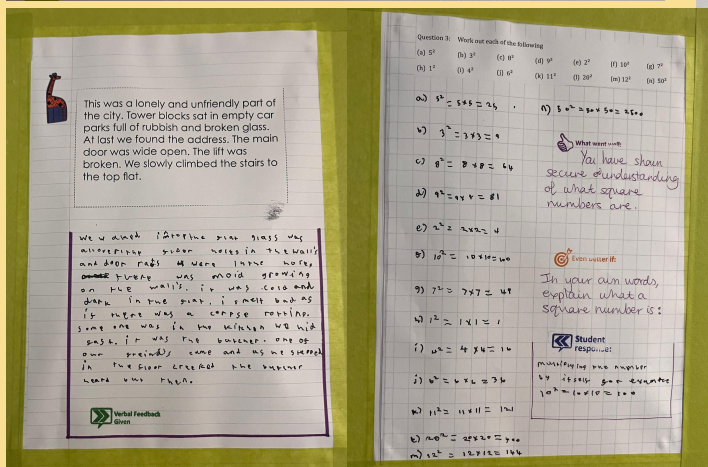 This was a lonely and unfriendly part of
the city. Tower blocks sat in empty car
parks full of rubbish and broken glass.
At last we found the address. The main
door was wide open. The lift was
broken. We slowly climbed the stairs to
the top flat.
glass was
all over the holes in the wall's
and dead rats were in the hole,
there was mold growing
on the wall's. it was cold and
dark in the flat. it smelt bad as
if there was a corpse rotting.
some one was in the kitchen we hid
fast. it was the butcher. one of
our freinds came and as he stepped
in the floor creeked the butcher
heard but then.
Verbal Feedback
Given
Question 3: Work out each of the following
(a) 5² (b) 3² (c) 8² (d) 9² (e) 2² (f) 10² (g) 7²
(h) 1² (i) 4² (j) 6² (k) 11² (l) 20² (m) 12² (n) 50²
a) 5² = 5x5 = 25
b) 3² = 3x3 = 9
c) 8² = 8x8 = 64
d) 9² = 9x9 = 81
e) 2² = 2x2 = 4
f) 10² = 10x10 = 100
g) 7² = 7x7 = 49
h) 1² = 1x1 = 1
i) 4² = 4x4 = 16
j) 6² = 6x6 = 36
k) 11² = 11x11 = 121
l) 20² = 20x20 = 400
m) 12² = 12x12 = 144
n) 50² = 50x50 = 2500
What went well:
You have shown
secure understanding
of what square
numbers are.
Even better if:
In your own words,
explain what a
square number is:
Student
response:
multiplying the number
by itself for example
10² = 10x10 = 100